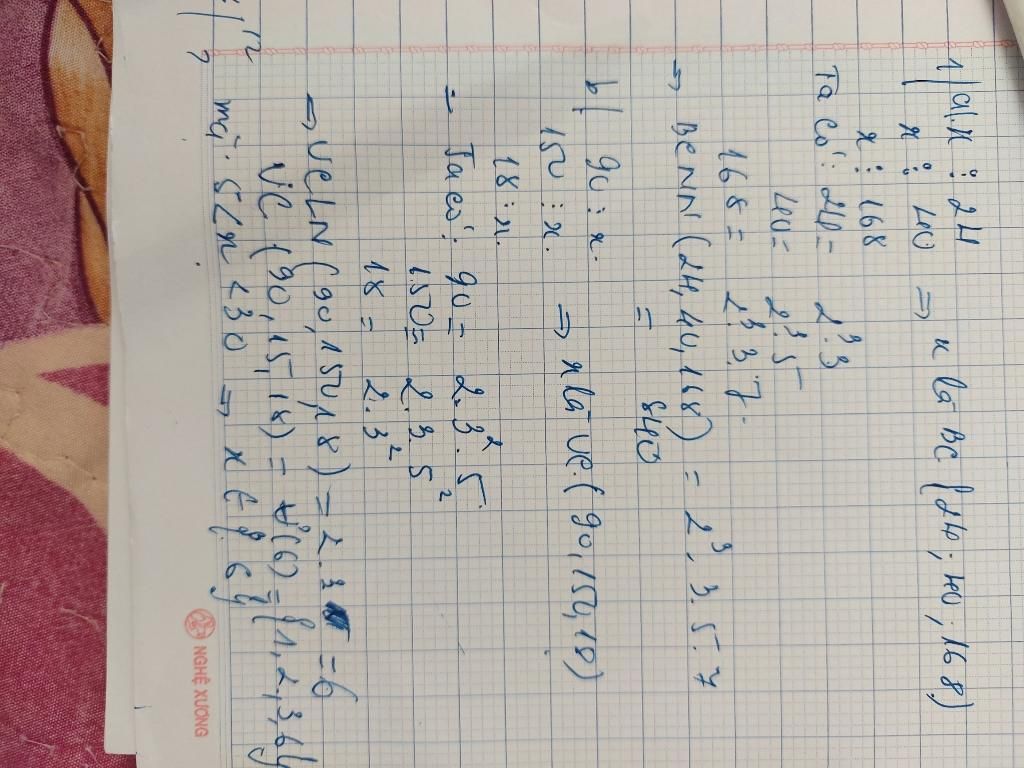 1/ a/ x ⋮ 24
x ⋮ 40 ⇒ x là BC (24, 40, 168)
x ⋮ 168
Ta có: 24 = 2³.3
40 = 2³.5
168 = 2³.3.7.
⇒ BCNN (24, 40, 168) = 2³.3.5.7
= 840
b/ 90 ⋮ x.
150 ⋮ x. ⇒ x là ƯC. (90, 150, 18)
18 ⋮ x.
= Ta có: 90 = 2.3².5.
150 = 2.3.5²
18 = 2.3²
⇒ ƯCLN (90, 150, 18) = 2.3 = 6
ƯC (90, 15, 18) = Ư(6) = {1, 2, 3, 6}
mà. 5 < x < 30 ⇒ x ∈ { 6 }
NGHỆ XƯƠNG